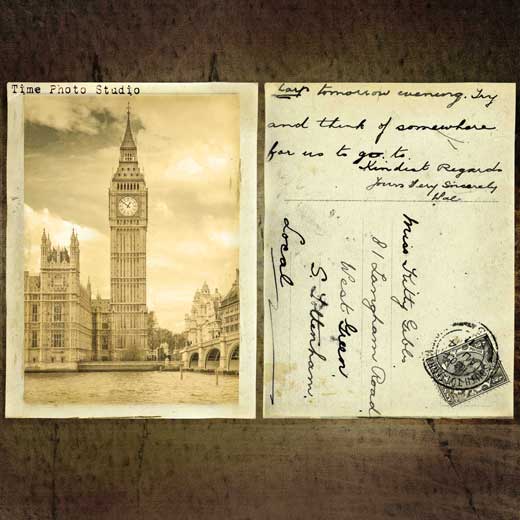 Time Photo Studio
tomorrow evening. Try
and think of somewhere
for us to go to.
Kindest Regards
Yours Very Sincerely
Hal
Miss Kitty Gibbs.
81 Langham Road
West Green
S. Tottenham.
Local